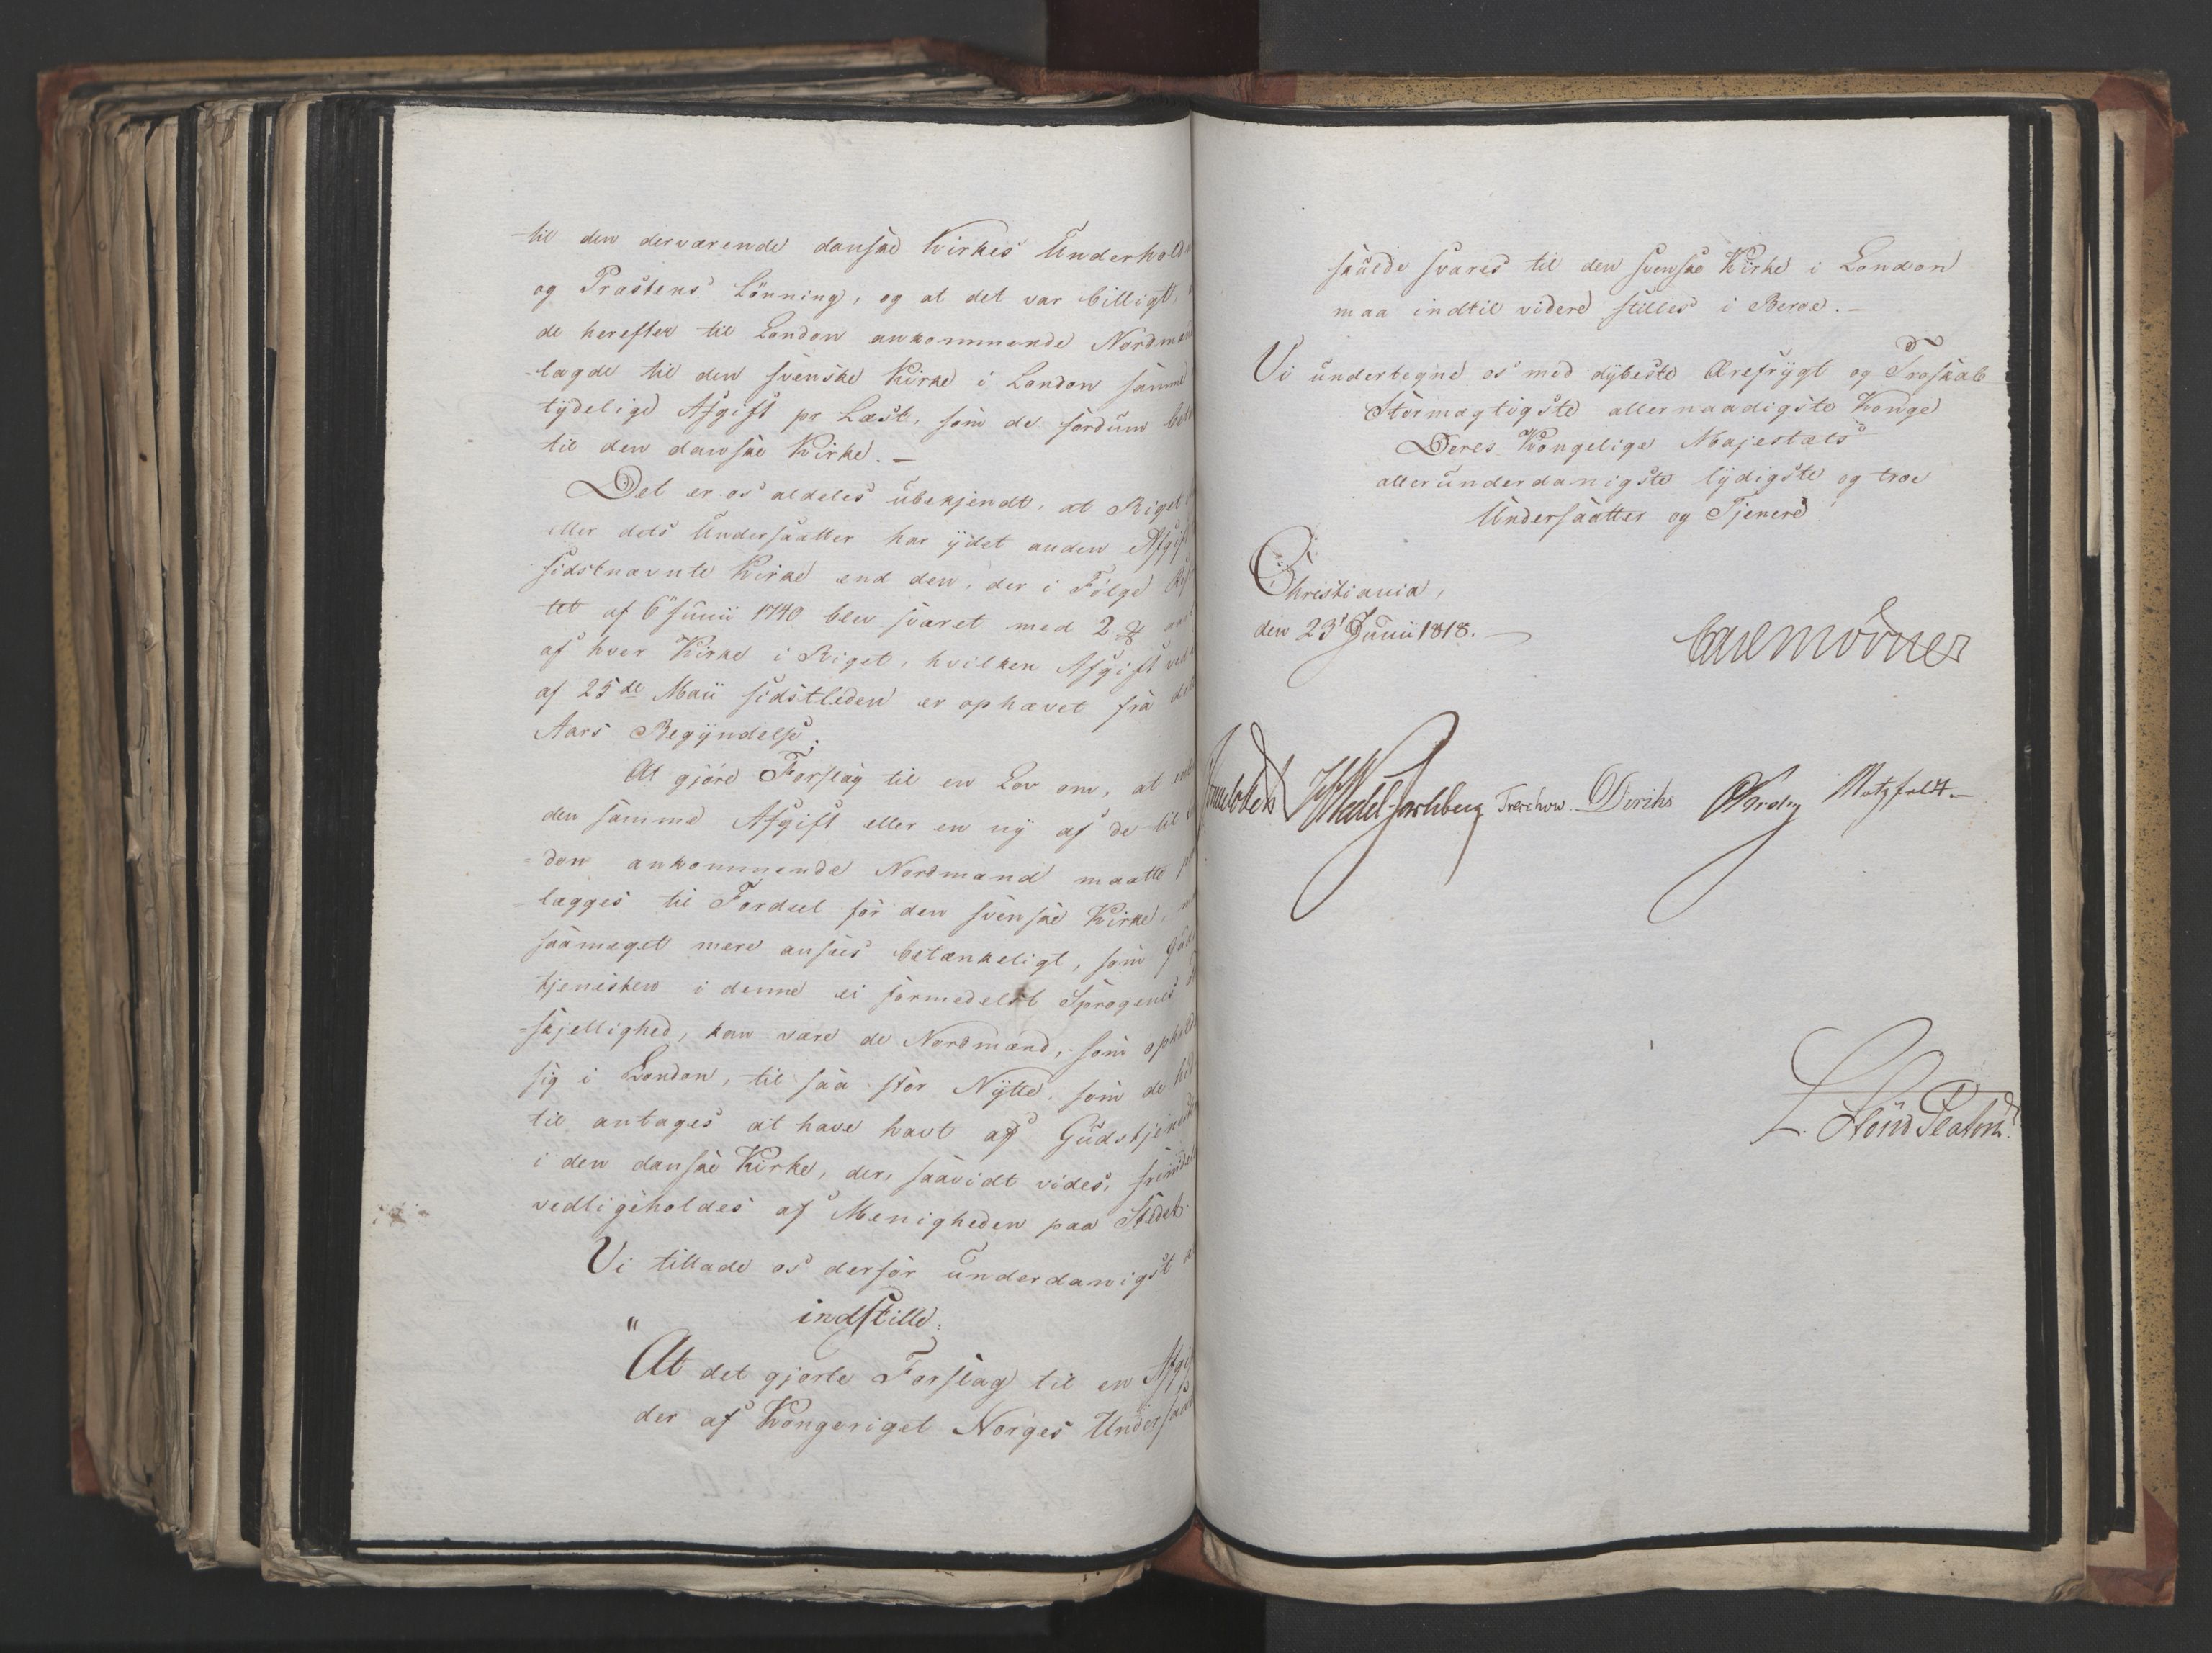 til den derværende danske Kirkes Underhold
og Præstens Lönning, og at det var billigt,
de herefter til London ankommende Nordmæn
lagde til den svenske Kirke i London samme
tydelige Afgift pr Læst, som de fordum
til den danske Kirke. —
Det er os aldeles ubekjendt, at Riget
eller dets Undersaatter har ydet anden Afgift
sidstnævnte Kirke end den, der i Fölge
tet af 6te Junii 1740 blev svaret med 2
af hver Kirke i Riget, hvilken Afgift ved
af 25de Maii sidstleden er ophævet fra
Aars Begyndelse.
At gjöre Forslag til en Lov om, at
den samme Afgift eller en ny af de til
don ankommende Nordmænd maatte
lægges til Fordeel for den svenske Kirke,
saameget mere ansees betænkeligt, som
tjenesten i denne ei formedelst Sprogenes
skjellighed, kan være de Nordmænd, som ophold
sig i London, til saa stor Nytte, som de hid
til antages at have havt af Gudstjenest
i den danske Kirke, der, saavidt vides, fremdel
vedligeholdes af Menigheden paa Stedet.
Vi tillade os derfor underdanigst
indstille:
"At det gjorte Forslag til en Afgi
der af Kongeriget Norges Undersaat
skulde svares til den svenske Kirke i London
maa indtil videre stilles i Beroe. —
Vi undertegne os med dybeste Ærefrygt og Troskab
Stormægtigste allernaadigste Konge
Deres Kongelige Majestæts
allerunderdanigste lydigste og troe
Undersaatter og Tjenere
Christiania,
den 23de Junii 1818. —
Carl Mörner
Sommerhielm HWedel-Jarlsberg Treschow Diriks Motzfeldt. —
L. Stoud Platou